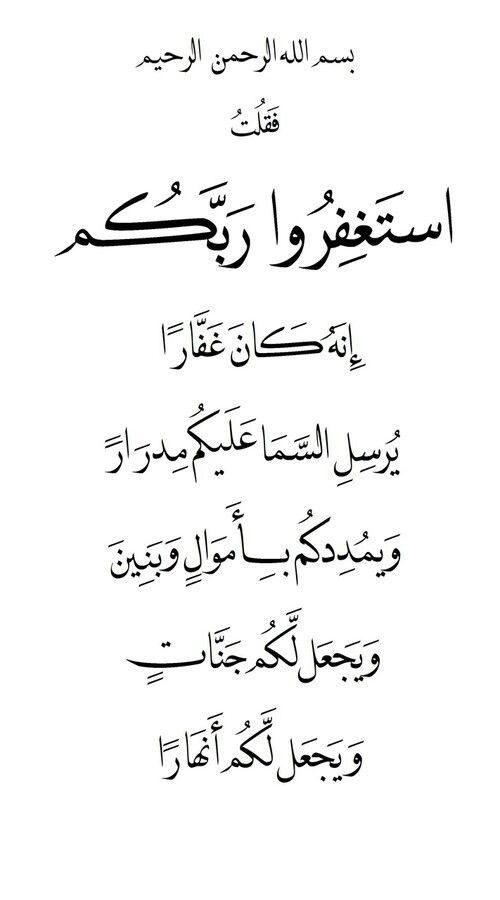 بسم الله الرحمن الرحيم
فَقُلتُ
استَغفِرُوا رَبَّكُم
إِنَهُ كَانَ غَفَّارًا
يُرسِلِ السَّمَا عَلَيكُم مِدرَارًا
وَيمُدِدكُم بِأَموَالٍ وَبَنِينَ
وَيَجعَل لَّكُم جَنَّاتٍ
وَيَجعَل لَّكُم أَنهَارًا